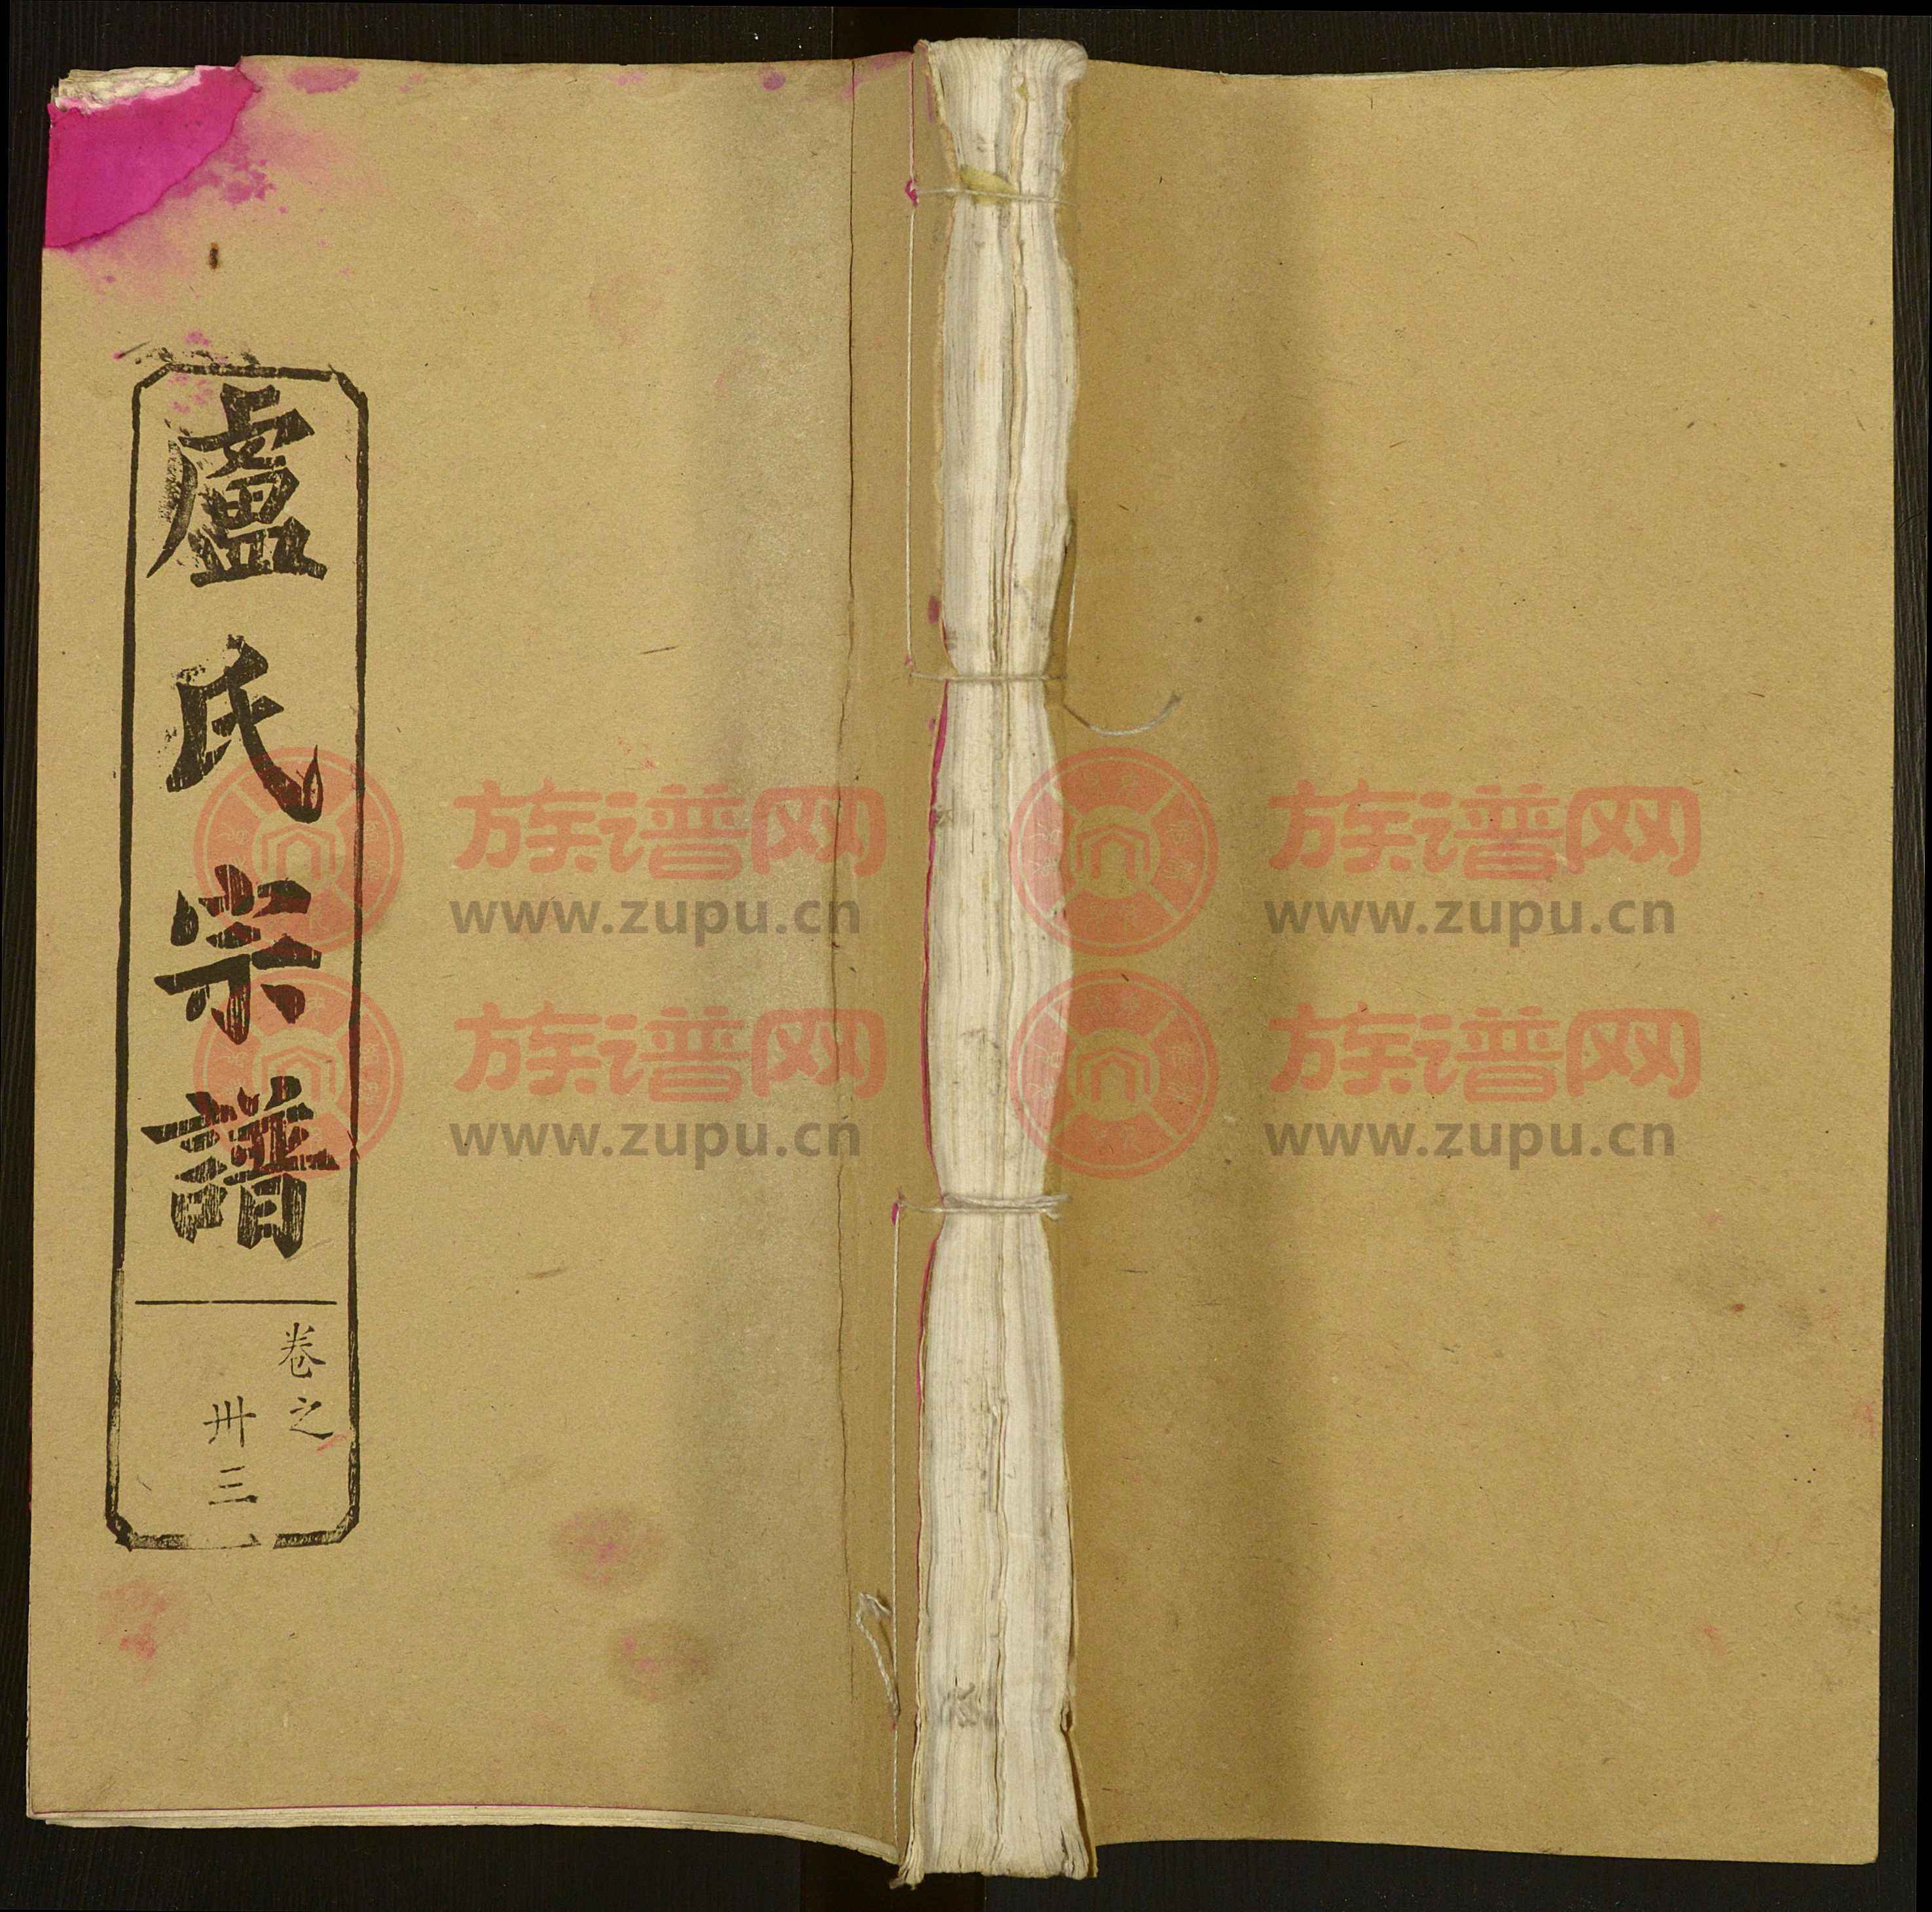 盧氏宗譜
卷之
卅三
族谱网
www.zupu.cn
族谱网
www.zupu.cn
族谱网
www.zupu.cn
族谱网
www.zupu.cn